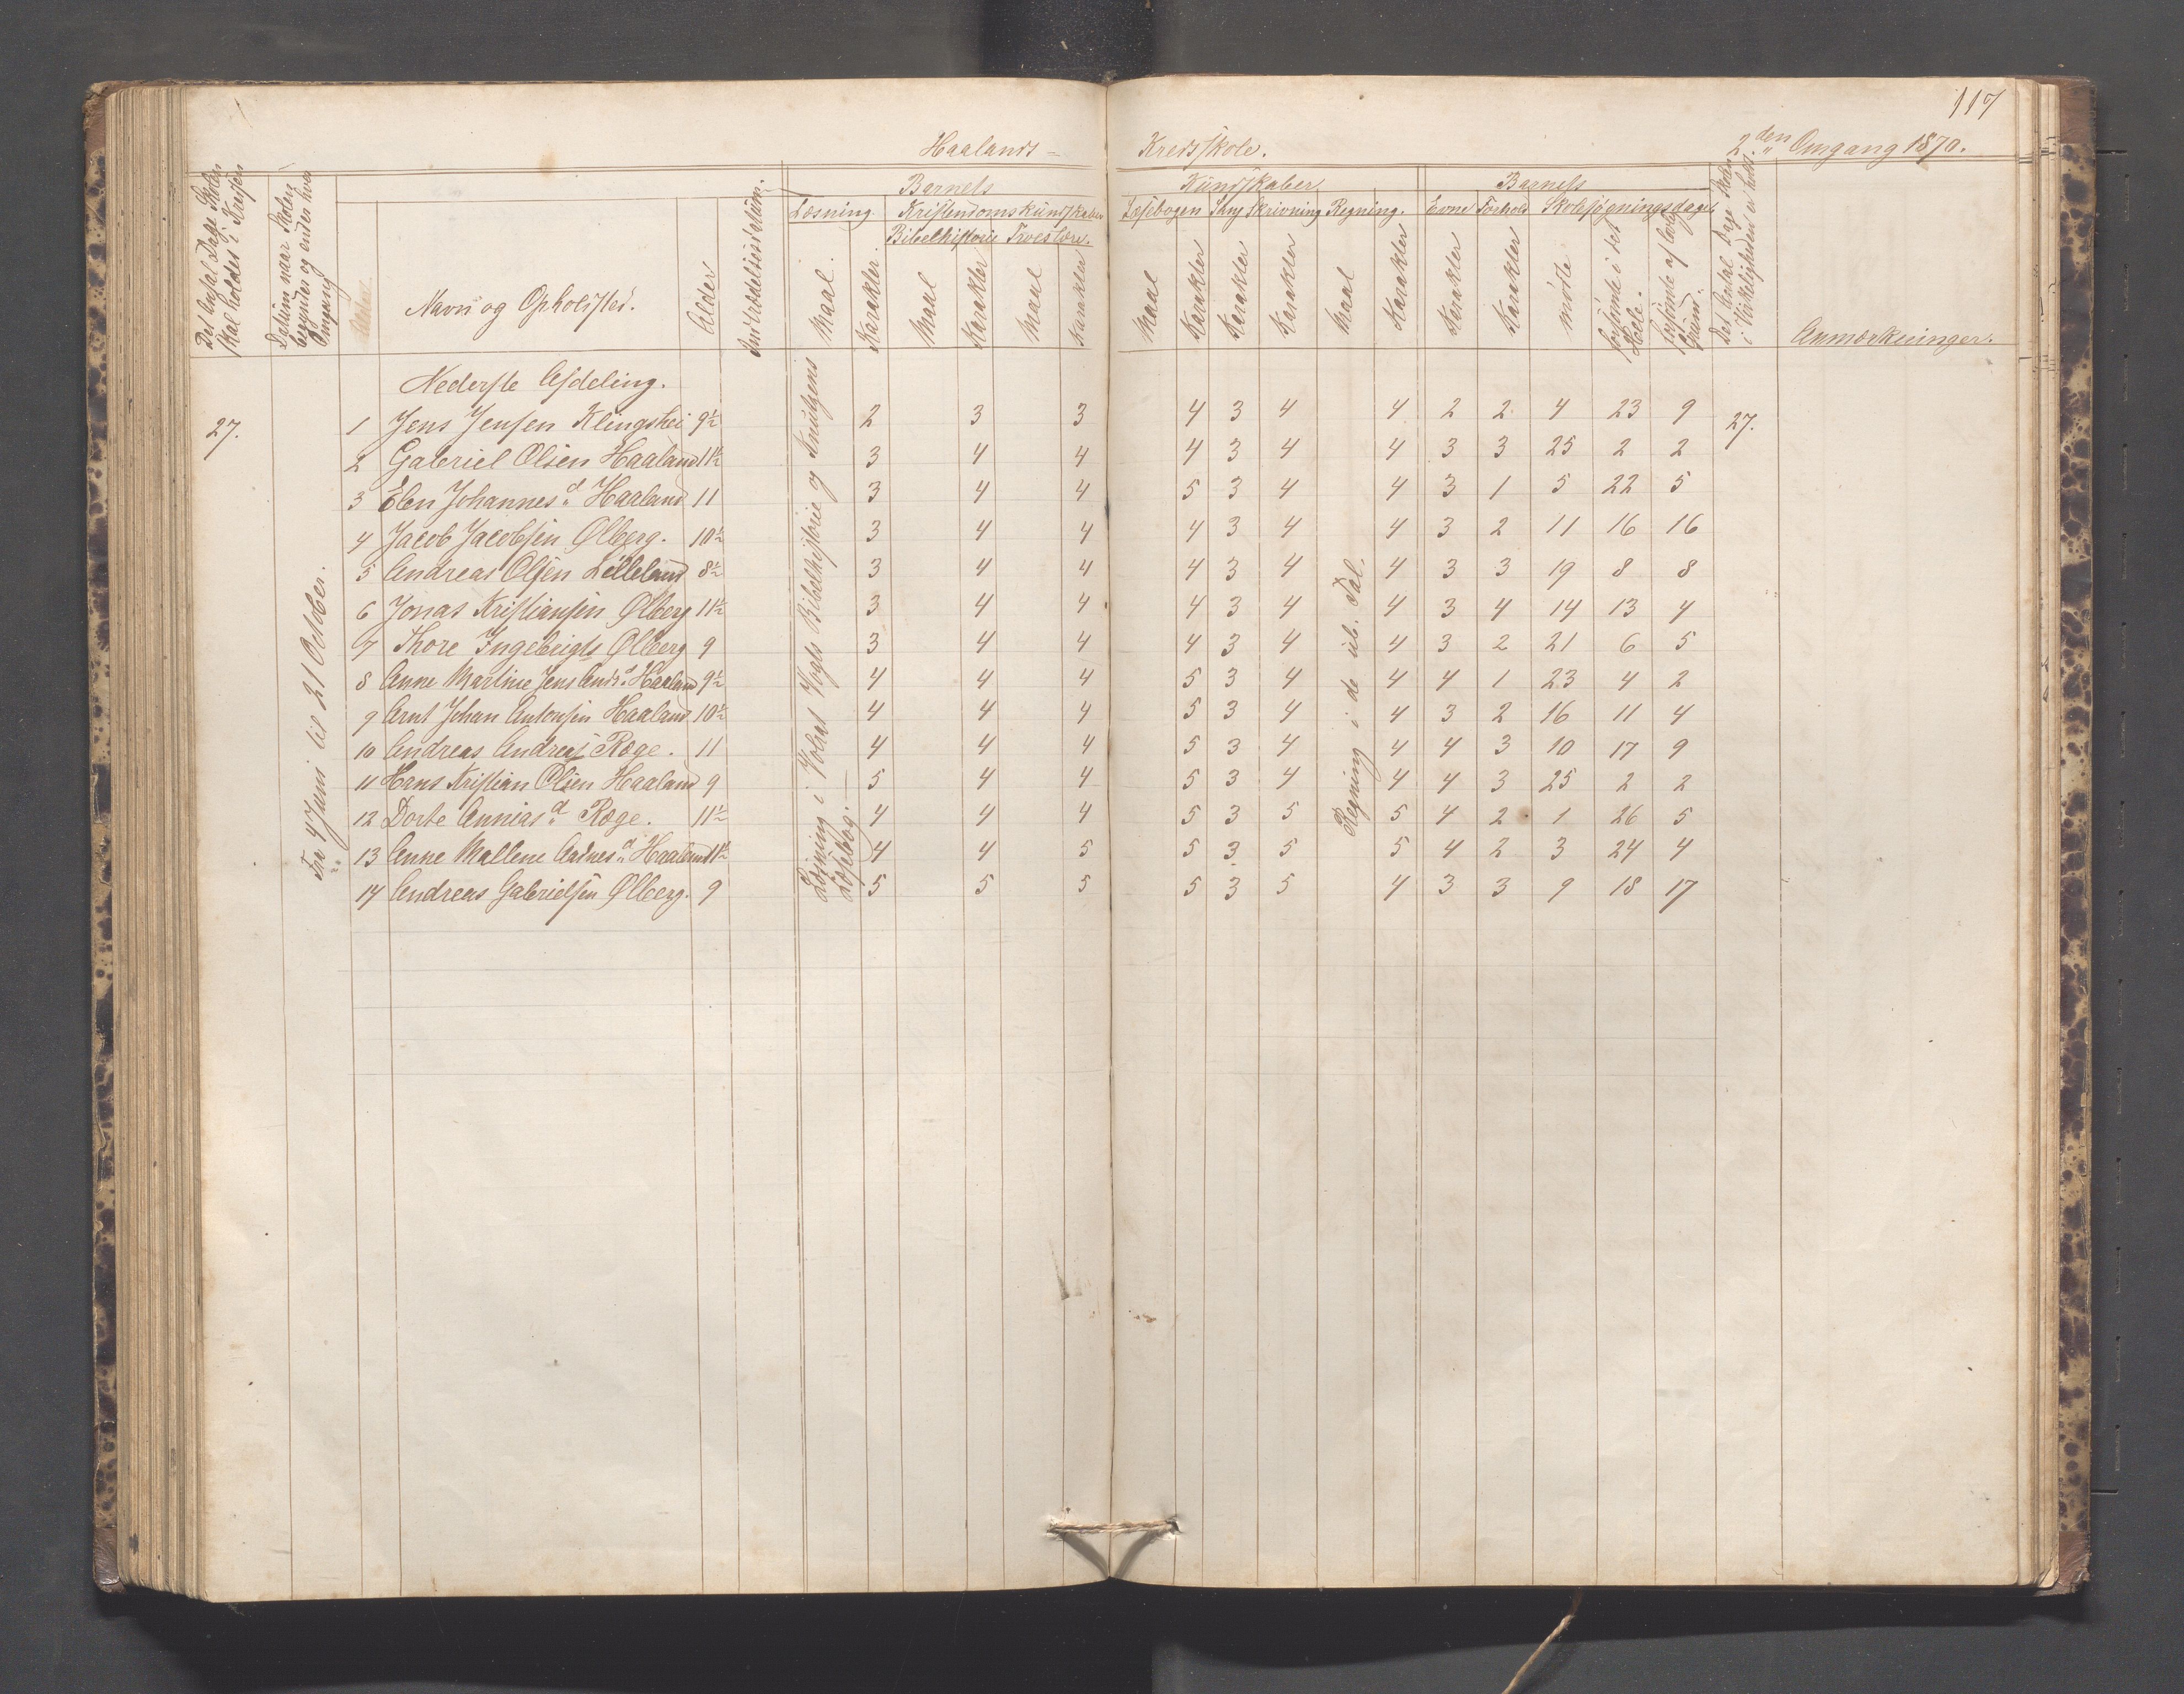 117
Haalands-
Kredsskole.
2den Omgang 1870.
Det Antal Dage Skolen skal holdes i Kredsen
Datum naar Skolen begynder og ender hver Omgang
Navn og Opholdsted.
Alder
Indtrædelsesdatum.
Barnets
Kundskaber
Barnets
Læsning
Kristendomskundskaber
Læsebogen
Sang
Skrivning
Regning.
Evne
Forhold
Skolesøgningsdage
Bibelhistorie
Troeslære.
Maal.
Karakter
Maal
Karakter
Maal
Karakter
Maal
Karakter
Karakter
Karakter
Maal
Karakter
Karakter
Karakter
mødte
forsømte i det Hele.
forsømte af lovlig Grund.
Det Antal Dage Skolen i Virkeligheden er holdt.
Anmærkninger.
Nederste Afdeling.
27.
Fra 4 Juni til 21 October.
Læsning i Volrat Vogts Bibelhistorie og Knudtzens Læsebog.
Regning i de ub. Tal.
27.
1 Jens Jensen Klingshei 9½ 2 3 3 4 3 4 4 2 2 4 23 9
2 Gabriel Olsen Haaland 11½ 3 4 4 4 3 4 4 3 3 25 2 2
3 Elen Johannesd Haaland 11 3 4 4 5 3 4 4 3 1 5 22 5
4 Jacob Jacobsen Ølberg. 10½ 3 4 4 4 3 4 4 3 2 11 16 16
5 Andreas Olsen Lilleland 8½ 3 4 4 4 3 4 4 3 3 19 8 8
6 Jonas Kristiansen Ølberg 11½ 3 4 4 4 3 4 4 3 4 14 13 4
7 Thore Ingebrigts Ølberg 9 3 4 4 4 3 4 4 3 2 21 6 5
8 Anne Martine Jens Andrd Haaland 9½ 4 4 4 5 3 4 4 4 1 23 4 2
9 Arnt Johan Antonsen Haaland 10½ 4 4 4 5 3 4 4 3 2 16 11 4
10 Andreas Andreas Røge. 11 4 4 4 5 3 4 4 4 3 10 17 9
11 Hans Kristian Olsen Haaland 9 5 4 4 5 3 4 4 4 3 25 2 2
12 Dorte Anniasd Røge. 11½ 4 4 4 5 3 5 5 4 2 1 26 5
13 Anne Mallene Aadnesd Haaland 11½ 4 4 5 5 3 5 5 4 2 3 24 4
14 Andreas Gabrielsen Ølberg. 9 5 5 5 5 3 5 4 3 3 9 18 17